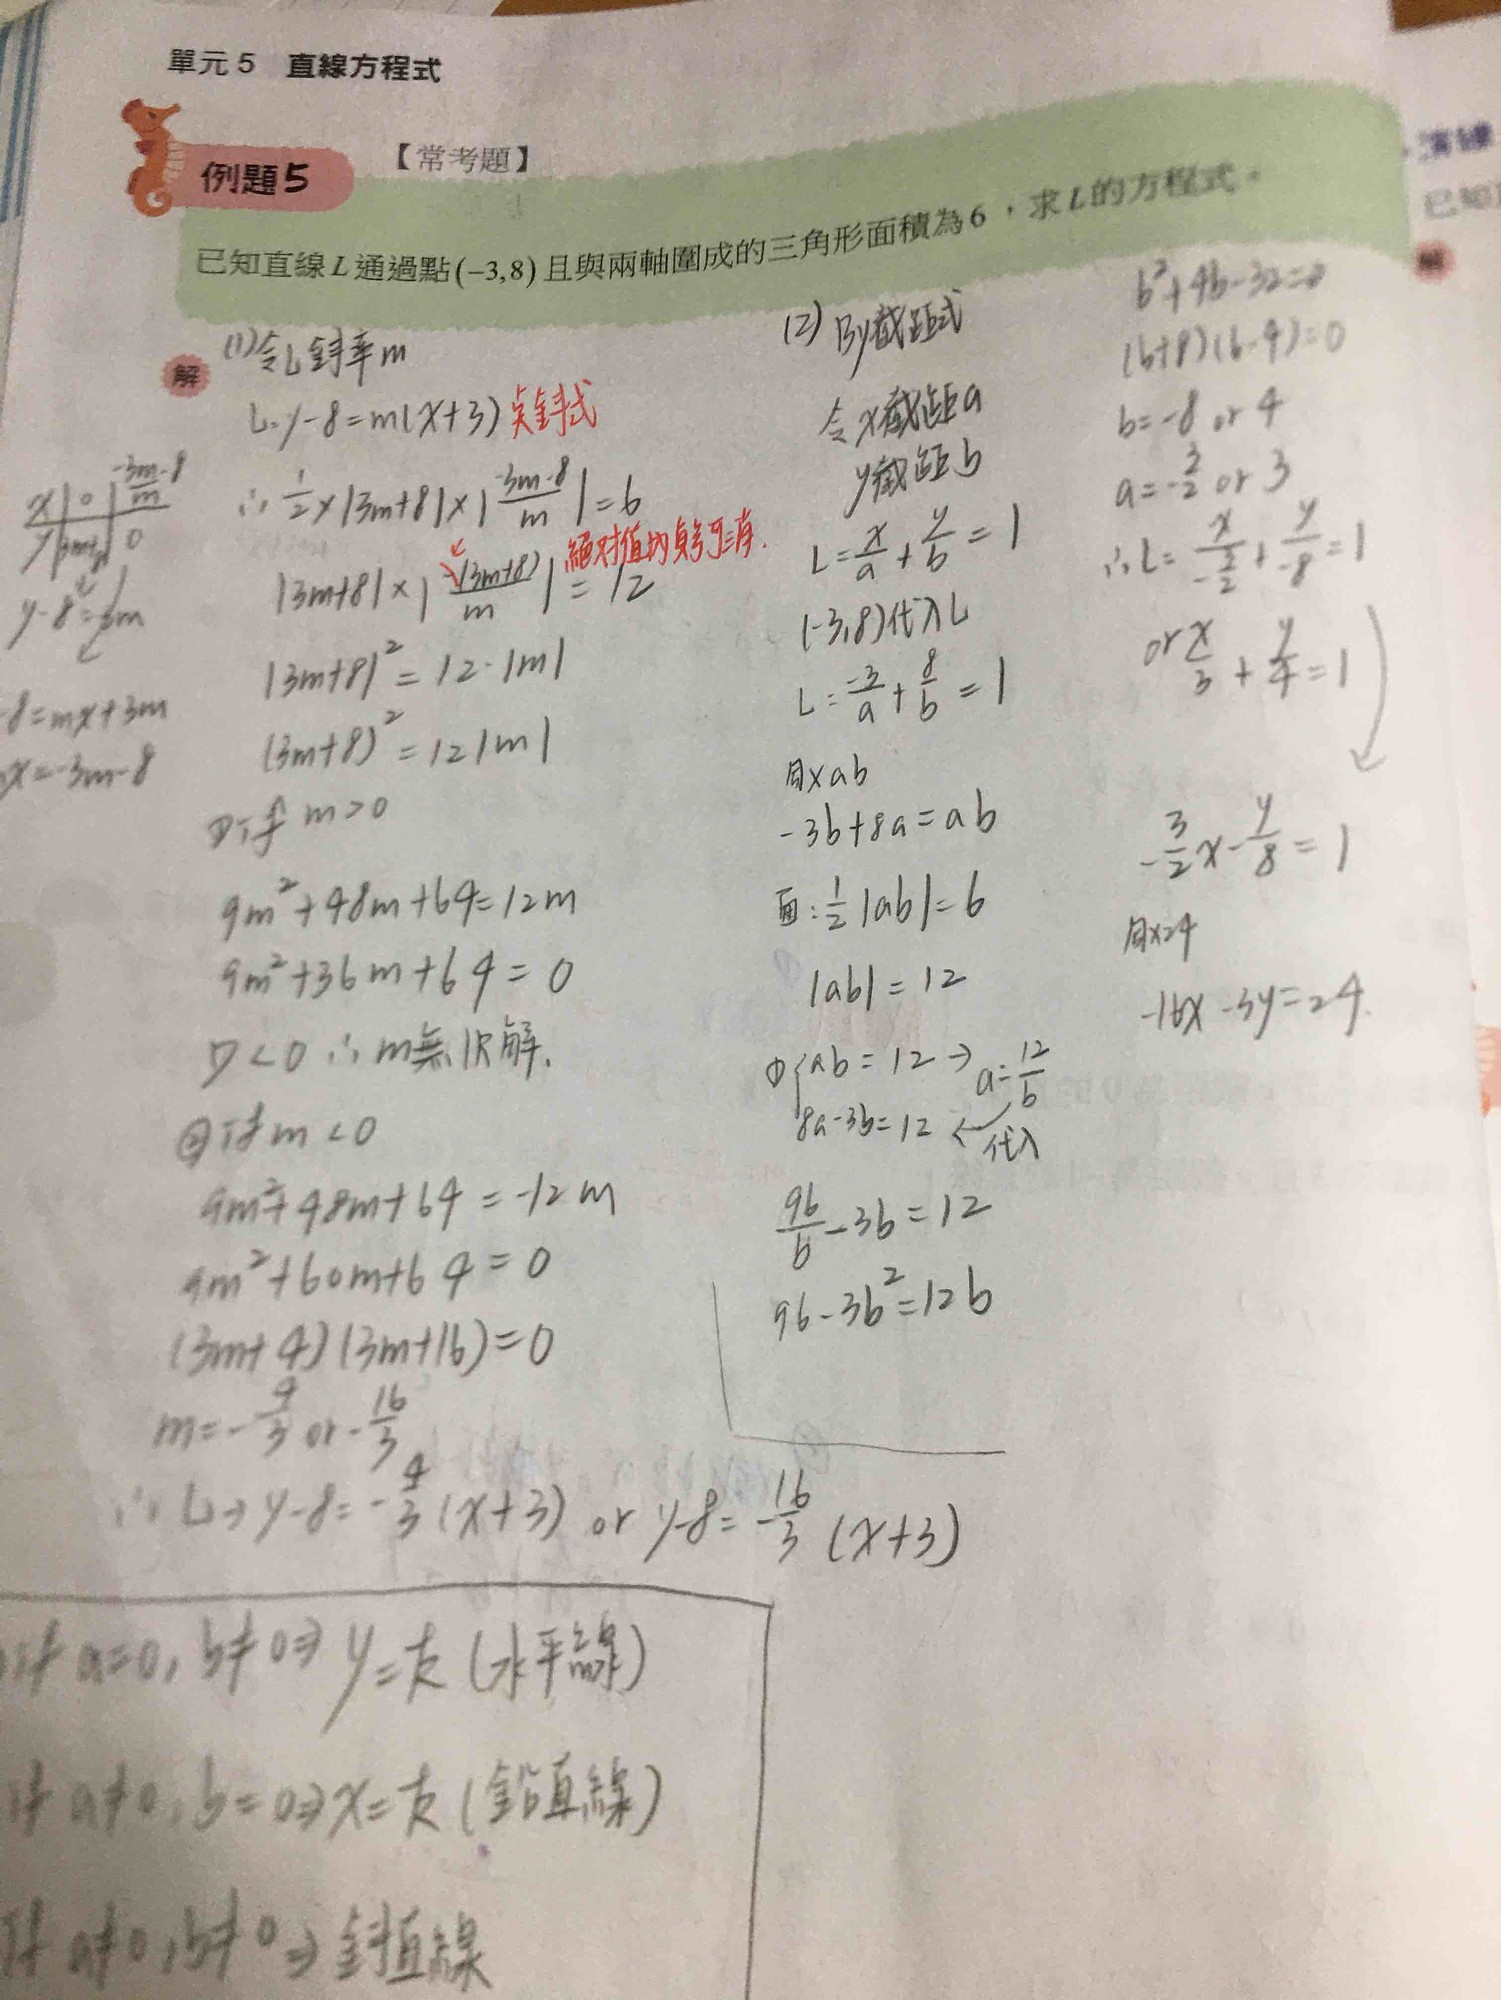 單元5 直線方程式
例題5
【常考題】
已知直線L通過點(-3,8)且與兩軸圍成的三角形面積為6，求L的方程式。
解
(1)令L斜率m
L:y-8=m(x+3) 點斜式
∴ 1/2×|3m+8|×|(-3m-8)/m|=6
|3m+8|×|-(3m+8)/m|=12
絕對值內負號可消.
|3m+8|²=12·|m|
(3m+8)²=12|m|
①if m>0
9m²+48m+64=12m
9m²+36m+64=0
D<0 ∴m無實解.
②if m<0
9m²+48m+64=-12m
9m²+60m+64=0
(3m+4)(3m+16)=0
m=-4/3 or -16/3
∴ L→y-8=-4/3(x+3) or y-8=-16/3(x+3)
x | 0 | (-3m-8)/m
y | 3m+8 | 0
y-8=3m
-8=mx+3m
x=-3m-8
(2) By截距式
令x截距a
y截距b
L=x/a+y/b=1
(-3,8)代入L
L=-3/a+8/b=1
同×ab
-3b+8a=ab
面:1/2|ab|=6
|ab|=12
①{ab=12→a=12/b
8a-3b=12 ← 代入
96/b-3b=12
96-3b²=12b
b²+4b-32=0
(b+8)(b-4)=0
b=-8 or 4
a=-3/2 or 3
∴L=x/(-3/2)+y/-8=1
or x/3+y/4=1
-3/2x-y/8=1
同×24
-16x-3y=24.
if a=0,b≠0⇒y=k(水平線)
if a≠0,b=0⇒x=k(鉛直線)
if a≠0,b≠0⇒斜直線
演練
已知
解